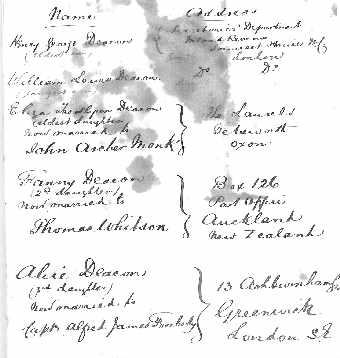 Name Address
Secretaries' Department
Henry George Deacon Inland Revenue
(eldest son) Somerset House WC
London
William Louis Deacon Do Do
Eliza Thompson Deacon The Laurels
(eldest daughter) Tetsworth
now married to Oxon
John Archer Monk
Fanny Deacon Box 126
(2nd daughter) Post Office
now married to Auckland
Thomas Whitson New Zealand
Alice Deacon
(3rd daughter) 13 Ashburnham
now married to Greenwich
Capt Alfred James London SE